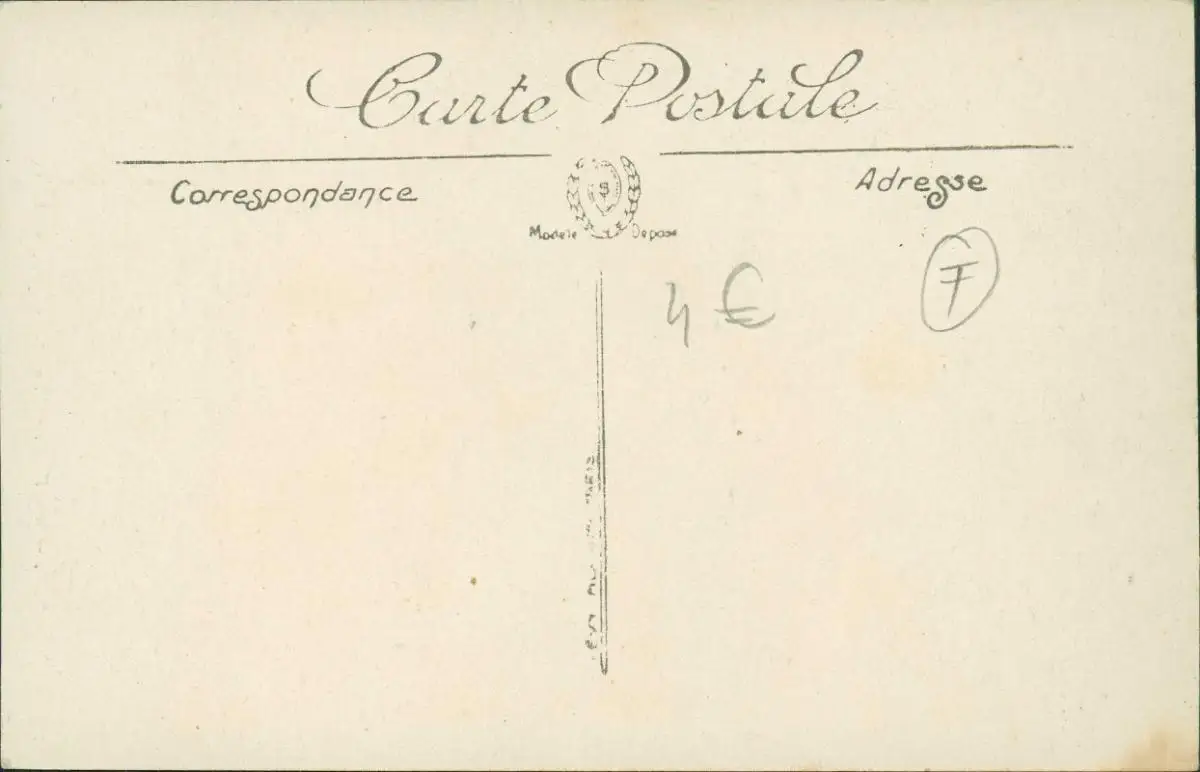 Carte Postale
Correspondance
Adresse
Modele Depose
4 €
F